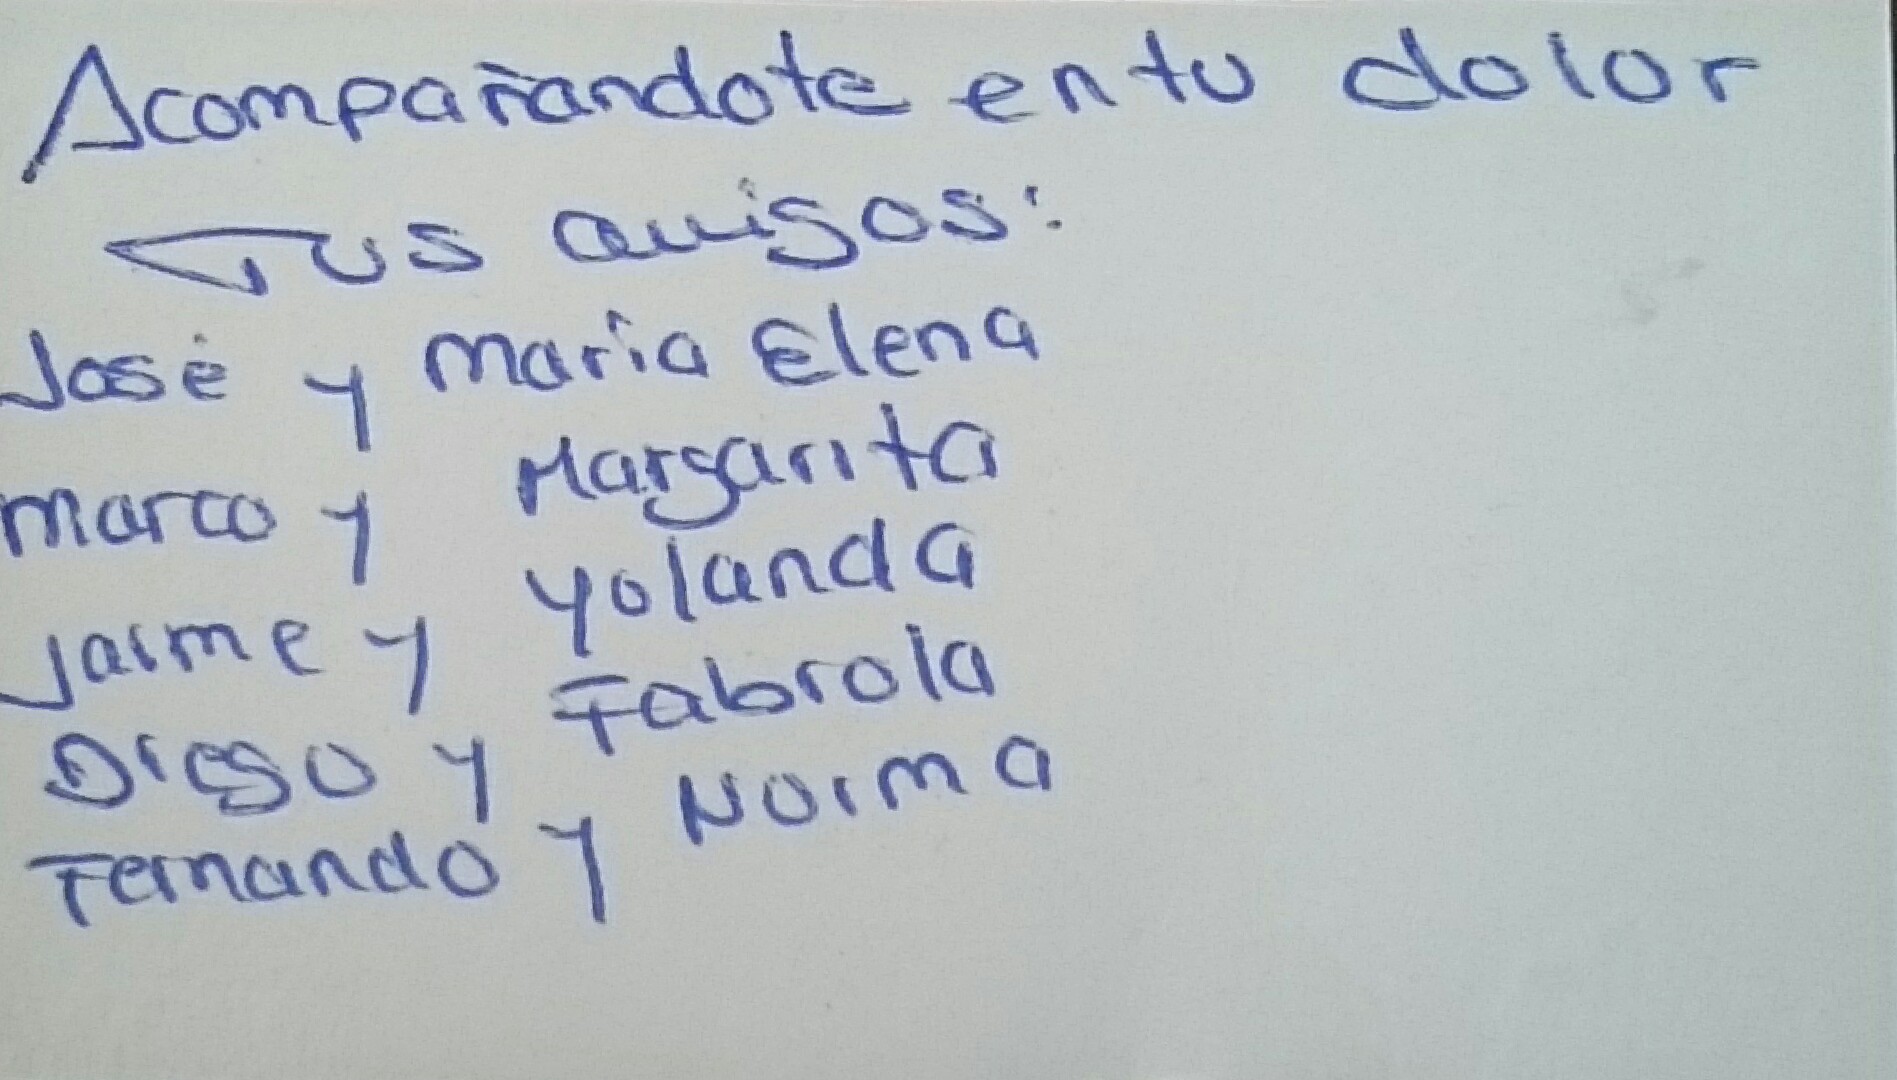 Acompañandote en tu dolor
Tus amigos:
José y maria Elena
marco y Margarita
Jaime y yolanda
Diego y Fabiola
Fernando y Norma